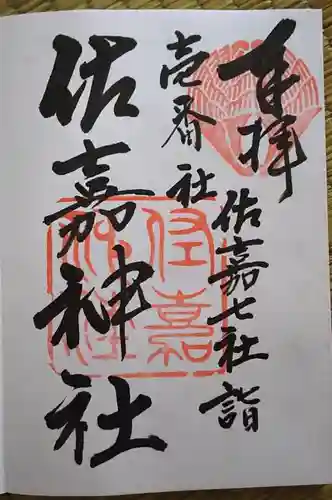 奉拝
佐嘉七社詣
壱番社
佐嘉神社
佐嘉神社